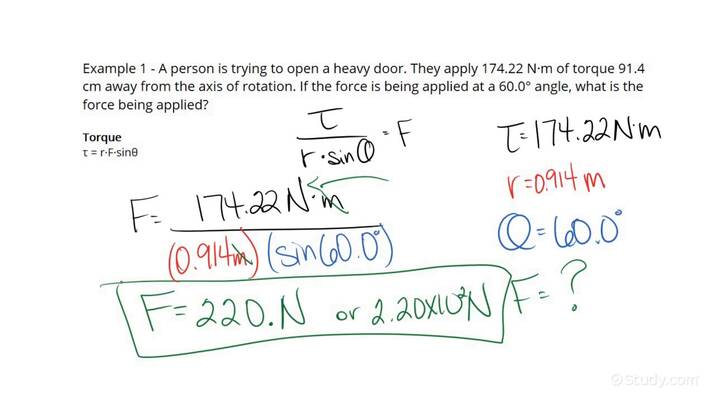 Example 1 - A person is trying to open a heavy door. They apply 174.22 N·m of torque 91.4
cm away from the axis of rotation. If the force is being applied at a 60.0° angle, what is the
force being applied?
Torque
τ = r·F·sinθ
τ
r·sinθ
= F
τ=174.22N·m
r=0.914m
θ=60.0°
F=?
F=
174.22N·m
(0.914m)(sin60.0°)
F=220.N or 2.20x10²N
©Study.com